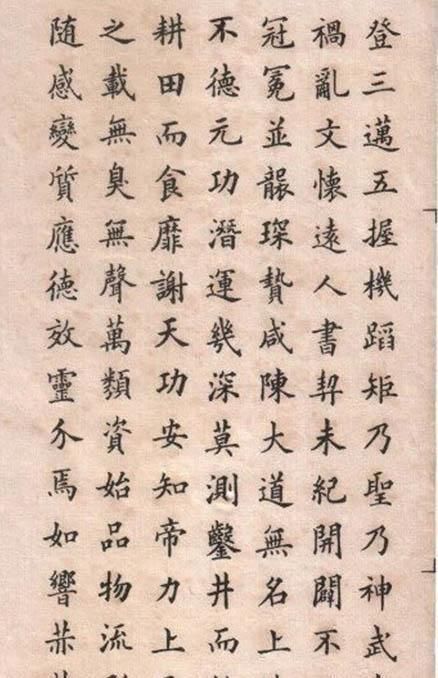 登三邁五握機蹈矩乃聖乃神武
禍亂文懷遠人書契未紀開闢不
冠冕並襲琛贄咸陳大道無名上
不德元功潛運幾深莫測鑿井而
耕田而食靡謝天功安知帝力上
之載無臭無聲萬類資始品物流
随感變質應德效靈介焉如響赫